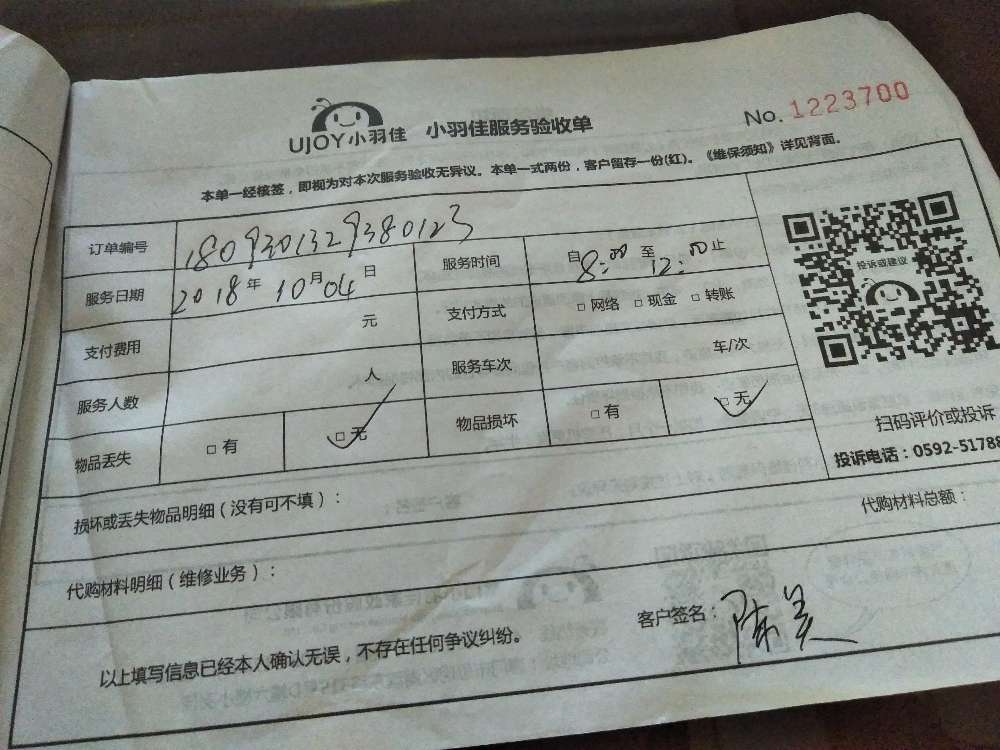 UJOY小羽佳 小羽佳服务验收单 No. 1223700
本单一经核签，即视为对本次服务验收无异议。本单一式两份，客户留存一份(红)。《维保须知》详见背面。
订单编号 1809301329380123
服务日期 2018年10月04日 服务时间 自8:00至12:00止
支付费用 元 支付方式 □网络 □现金 □转账
服务人数 人 服务车次 车/次
物品丢失 □有 □无 物品损坏 □有 □无
投诉或建议
扫码评价或投诉
投诉电话：0592-51788
损坏或丢失物品明细（没有可不填）：
代购材料明细（维修业务）： 代购材料总额：
以上填写信息已经本人确认无误，不存在任何争议纠纷。 客户签名：